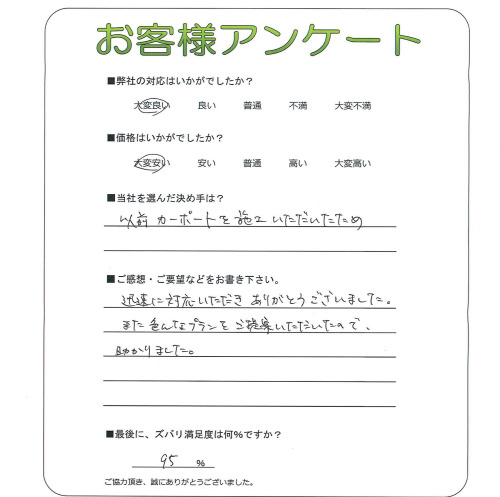 お客様アンケート
■弊社の対応はいかがでしたか？
大変良い 良い 普通 不満 大変不満
■価格はいかがでしたか？
大変安い 安い 普通 高い 大変高い
■当社を選んだ決め手は？
以前カーポートを施工いただいたため
■ご感想・ご要望などをお書き下さい。
迅速に対応いただきありがとうございました。
また色んなプランをご提案いただいたので、
助かりました。
■最後に、ズバリ満足度は何%ですか？
95 %
ご協力頂き、誠にありがとうございました。